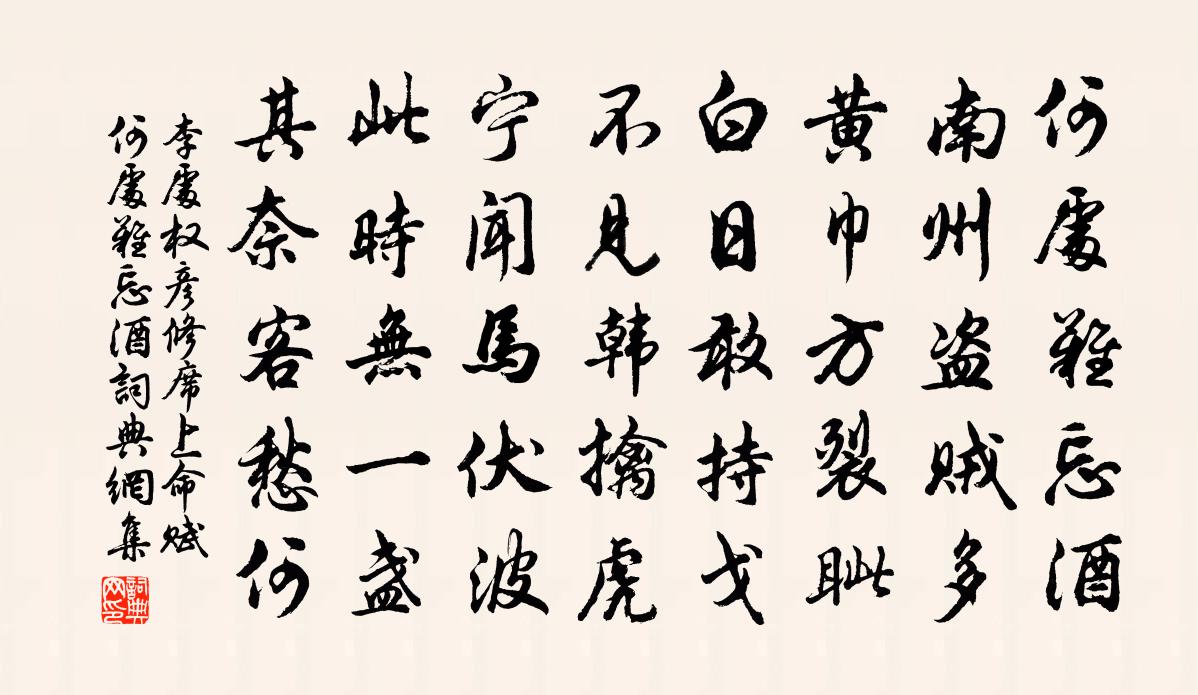 何處難忘酒
南州盗賊多
黄巾方裂眦
白日敢持戈
不見韩擒虎
宁聞馬伏波
此時無一盏
其奈客愁何
李處权彦修席上命赋
何處難忘酒詞典網集
詞典
网印